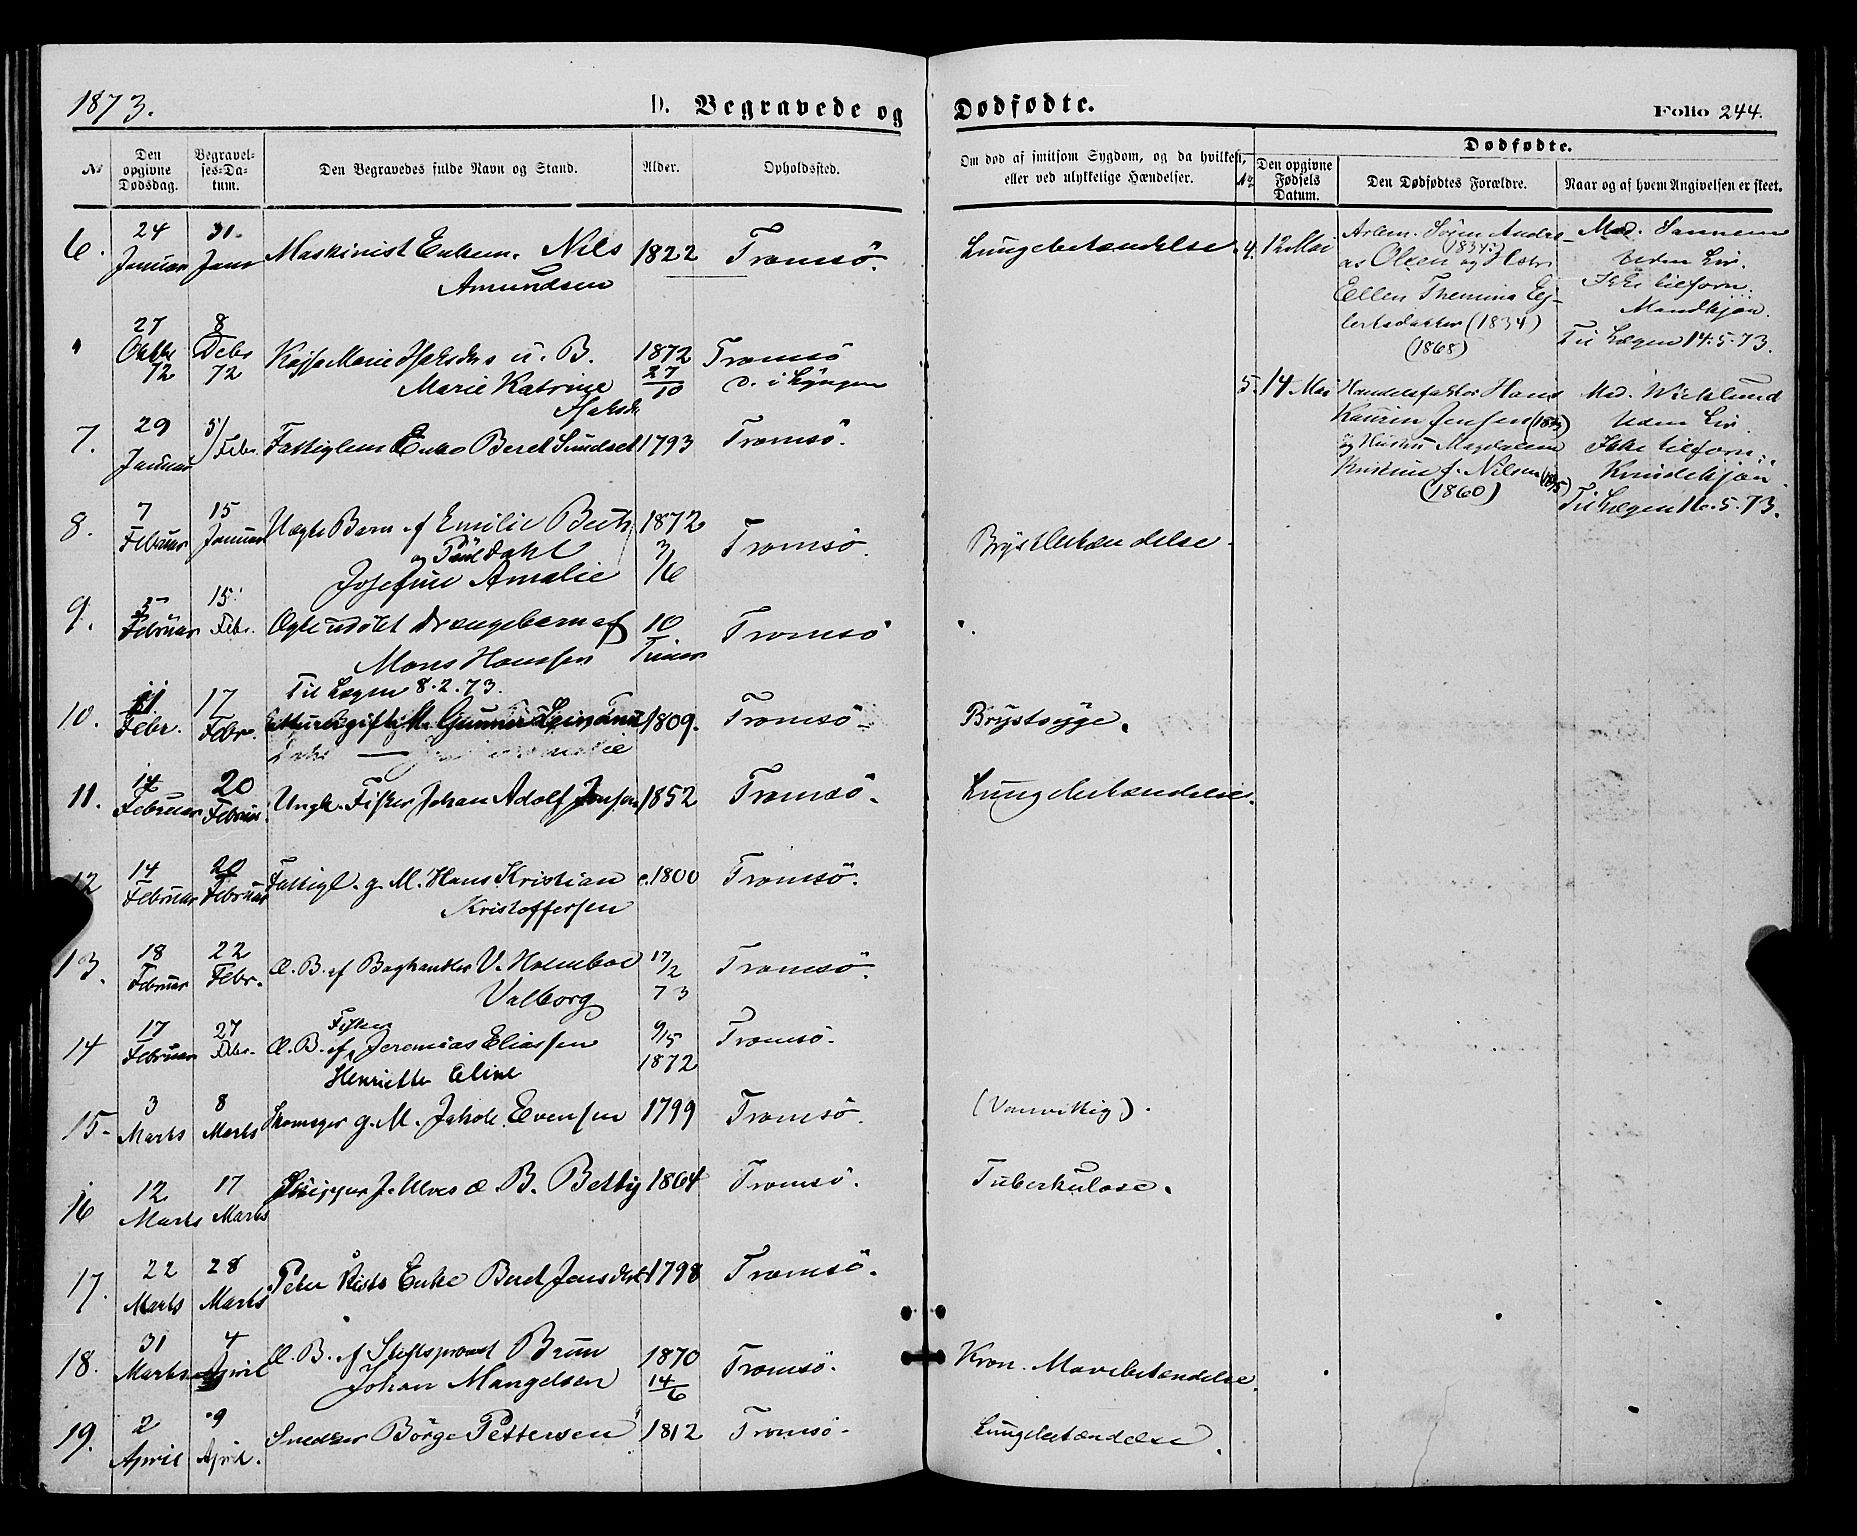 1873.
D. Begravede og Dødfødte.
Folio 244.
№
Den opgivne Dødsdag.
Begravelses-Datum.
Den Begravedes fulde Navn og Stand.
Alder.
Opholdssted.
Om død af smitsom Sygdom, og da hvilken,
eller ved ulykkelige Hændelser.
№
Dødfødte.
Den opgivne Fødsels Datum.
Den Dødfødtes Forældre.
Naar og af hvem Angivelsen er skeet.
6. 24 Januar 31. Janr Maskinist Enkem. Nils 1822 Tromsö. Lungebetændelse.
Amundsen
27 Oktbr 72 8 Debr 72 Kajsa Marie u. B. 1872 27/10 Tromsö
Marie Katrine d. i Lyngen
7. 29 Januar 5/Febr. Fattiglem Enke Beret Sundset 1793 Tromsö.
8. 7 Februar 15 Januar Uægte Barn af Emilie 1872 3/6 Tromsö. Brystbetændelse.
og Paul Dahl
Josefine Amalie
9. 5 Februar 15. Febr. Ægte udöbt Drængebarn af 10 Timer Tromsö
Mons Hanssen
Til Lægen 8.2.73.
10. 11 Febr. 17 Febr. 1809. Tromsö Brystsyge.
11. 14 Februar 20 Februar. Ungk. Fisker Johan Adolf Jensen 1852 Tromsö. Lungebetændelse.
12 14 Februar 20 Februar Fattigl. g. M. Hans Kristian c.1800 Tromsö.
Kristoffersen
13. 18 Februar 22 Febr. Æ. B. af Boghandler V. Holmboe 17/2 73 Tromsö.
Valborg
14 17 Februar 27 Febr. Æ. B. af Fisker Jeremias Eliassen 9/5 1872 Tromsö.
Henriette Eline
15. 3 Marts 8 Marts Skomager g. M. Jakob Evensen 1799 Tromsö. (Vanvittig).
16 12 Marts 17 Marts Skipper J. Ulves Æ B. Betty 1864 Tromsö. Tuberkulose.
17. 22 Marts 28 Marts Peter Enke Beret Jensdtr 1798 Tromsö.
18. 31 Marts 4 April Æ. B. af Stiftsprovst Brun 1870 14/6 Tromsö. Kron. Mavebetændelse.
Johan Mangelsen
19. 2 April 9 April. Snedker Börge Pettersen 1812 Tromsö. Lungebetændelse.
4. 12 Mai
Arbm. Sören Andre-
as Olsen (1834) og Hstr.
Ellen Ej-
lertsdatter (1834)
(1868)
Mad. Sannem
Uden Liv.
Ikke tilforn.
Mandkjön.
Til Lægen 14.5.73.
5. 14 Mai
Handelsfaktor Hans
Kaurin Jensen
og Hustru Magdalena
f. Nilsen
(1860)
Mad. Wicklund
Uden Liv.
Ikke tilforn.
Kvindekjön.
Til Lægen 16.5.73.